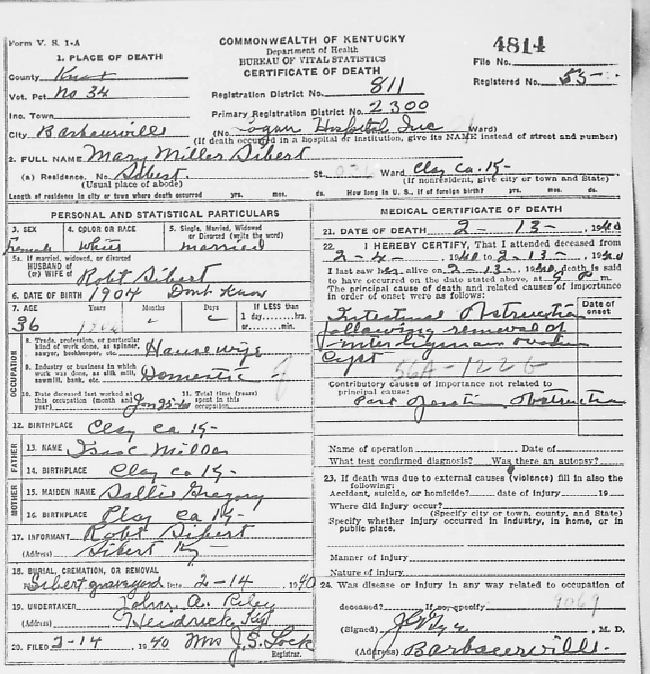 Form V. S. 1-A
COMMONWEALTH OF KENTUCKY
Department of Health
BUREAU OF VITAL STATISTICS
CERTIFICATE OF DEATH
File No. 4814
Registered No. 55-
1. PLACE OF DEATH
County Knox
Vot. Pct No 34
Inc. Town
City Barbourville
Registration District No. 811
Primary Registration District No. 2300
(No. Logan Hospital Inc Ward)
(If death occurred in a hospital or institution, give its NAME instead of street and number)
2. FULL NAME Mary Miller Sibert
(a) Residence. No. Sibert. St. Ward Clay Co. Ky-
(Usual place of abode) (If nonresident, give city or town and State)
Length of residence in city or town where death occurred yrs. mos. ds. How long in U. S., if of foreign birth? yrs. mos. ds.
PERSONAL AND STATISTICAL PARTICULARS
3. SEX female
4. COLOR OR RACE White
5. Single, Married, Widowed or Divorced (write the word) married
5a. If married, widowed, or divorced
HUSBAND of
(or) WIFE of Robt Sibert
6. DATE OF BIRTH 1904 Dont Know
7. AGE Years Months Days If LESS than
1 day......hrs.
or......min.
36
OCCUPATION
8. Trade, profession, or particular
kind of work done, as spinner,
sawyer, bookkeeper, etc. Housewife
9. Industry or business in which
work was done, as silk mill,
sawmill, bank, etc. Domestic
10. Date deceased last worked at
this occupation (month and
year)
11. Total time (years)
spent in this
occupation
12. BIRTHPLACE Clay Co Ky-
FATHER
13. NAME Isaac Miller
14. BIRTHPLACE Clay Co Ky-
MOTHER
15. MAIDEN NAME Sallie Gregory
16. BIRTHPLACE Clay Co Ky-
17. INFORMANT Robt Sibert
(Address) Sibert Ky-
18. BURIAL, CREMATION, OR REMOVAL
Sibert graveyard Date 2-14 1940
19. UNDERTAKER John A. Riley
(Address) Heidrick Ky
20. FILED 2-14 1940 Mrs J. S. Lock
Registrar.
MEDICAL CERTIFICATE OF DEATH
21. DATE OF DEATH 2-13- 1940
22. I HEREBY CERTIFY, That I attended deceased from
2-4- 1940 to 2-13- 1940
I last saw her alive on 2-13- 1940, death is said
to have occurred on the date stated above, at 9 m.
The principal cause of death and related causes of importance
in order of onset were as follows:
Date of
onset
Intestinal Obstruction
following removal of
ovarian
cyst
56A-122B
Contributory causes of importance not related to
principal cause:
Obstruction
Name of operation Date of
What test confirmed diagnosis? Was there an autopsy?
23. If death was due to external causes (violence) fill in also the
following:
Accident, suicide, or homicide? date of injury 19
Where did injury occur?
(Specify city or town, county, and State)
Specify whether injury occurred in industry, in home, or in
public place.
Manner of injury
Nature of injury
24. Was disease or injury in any way related to occupation of
deceased? If so, specify
(Signed) M. D.
(Address) Barbourville.